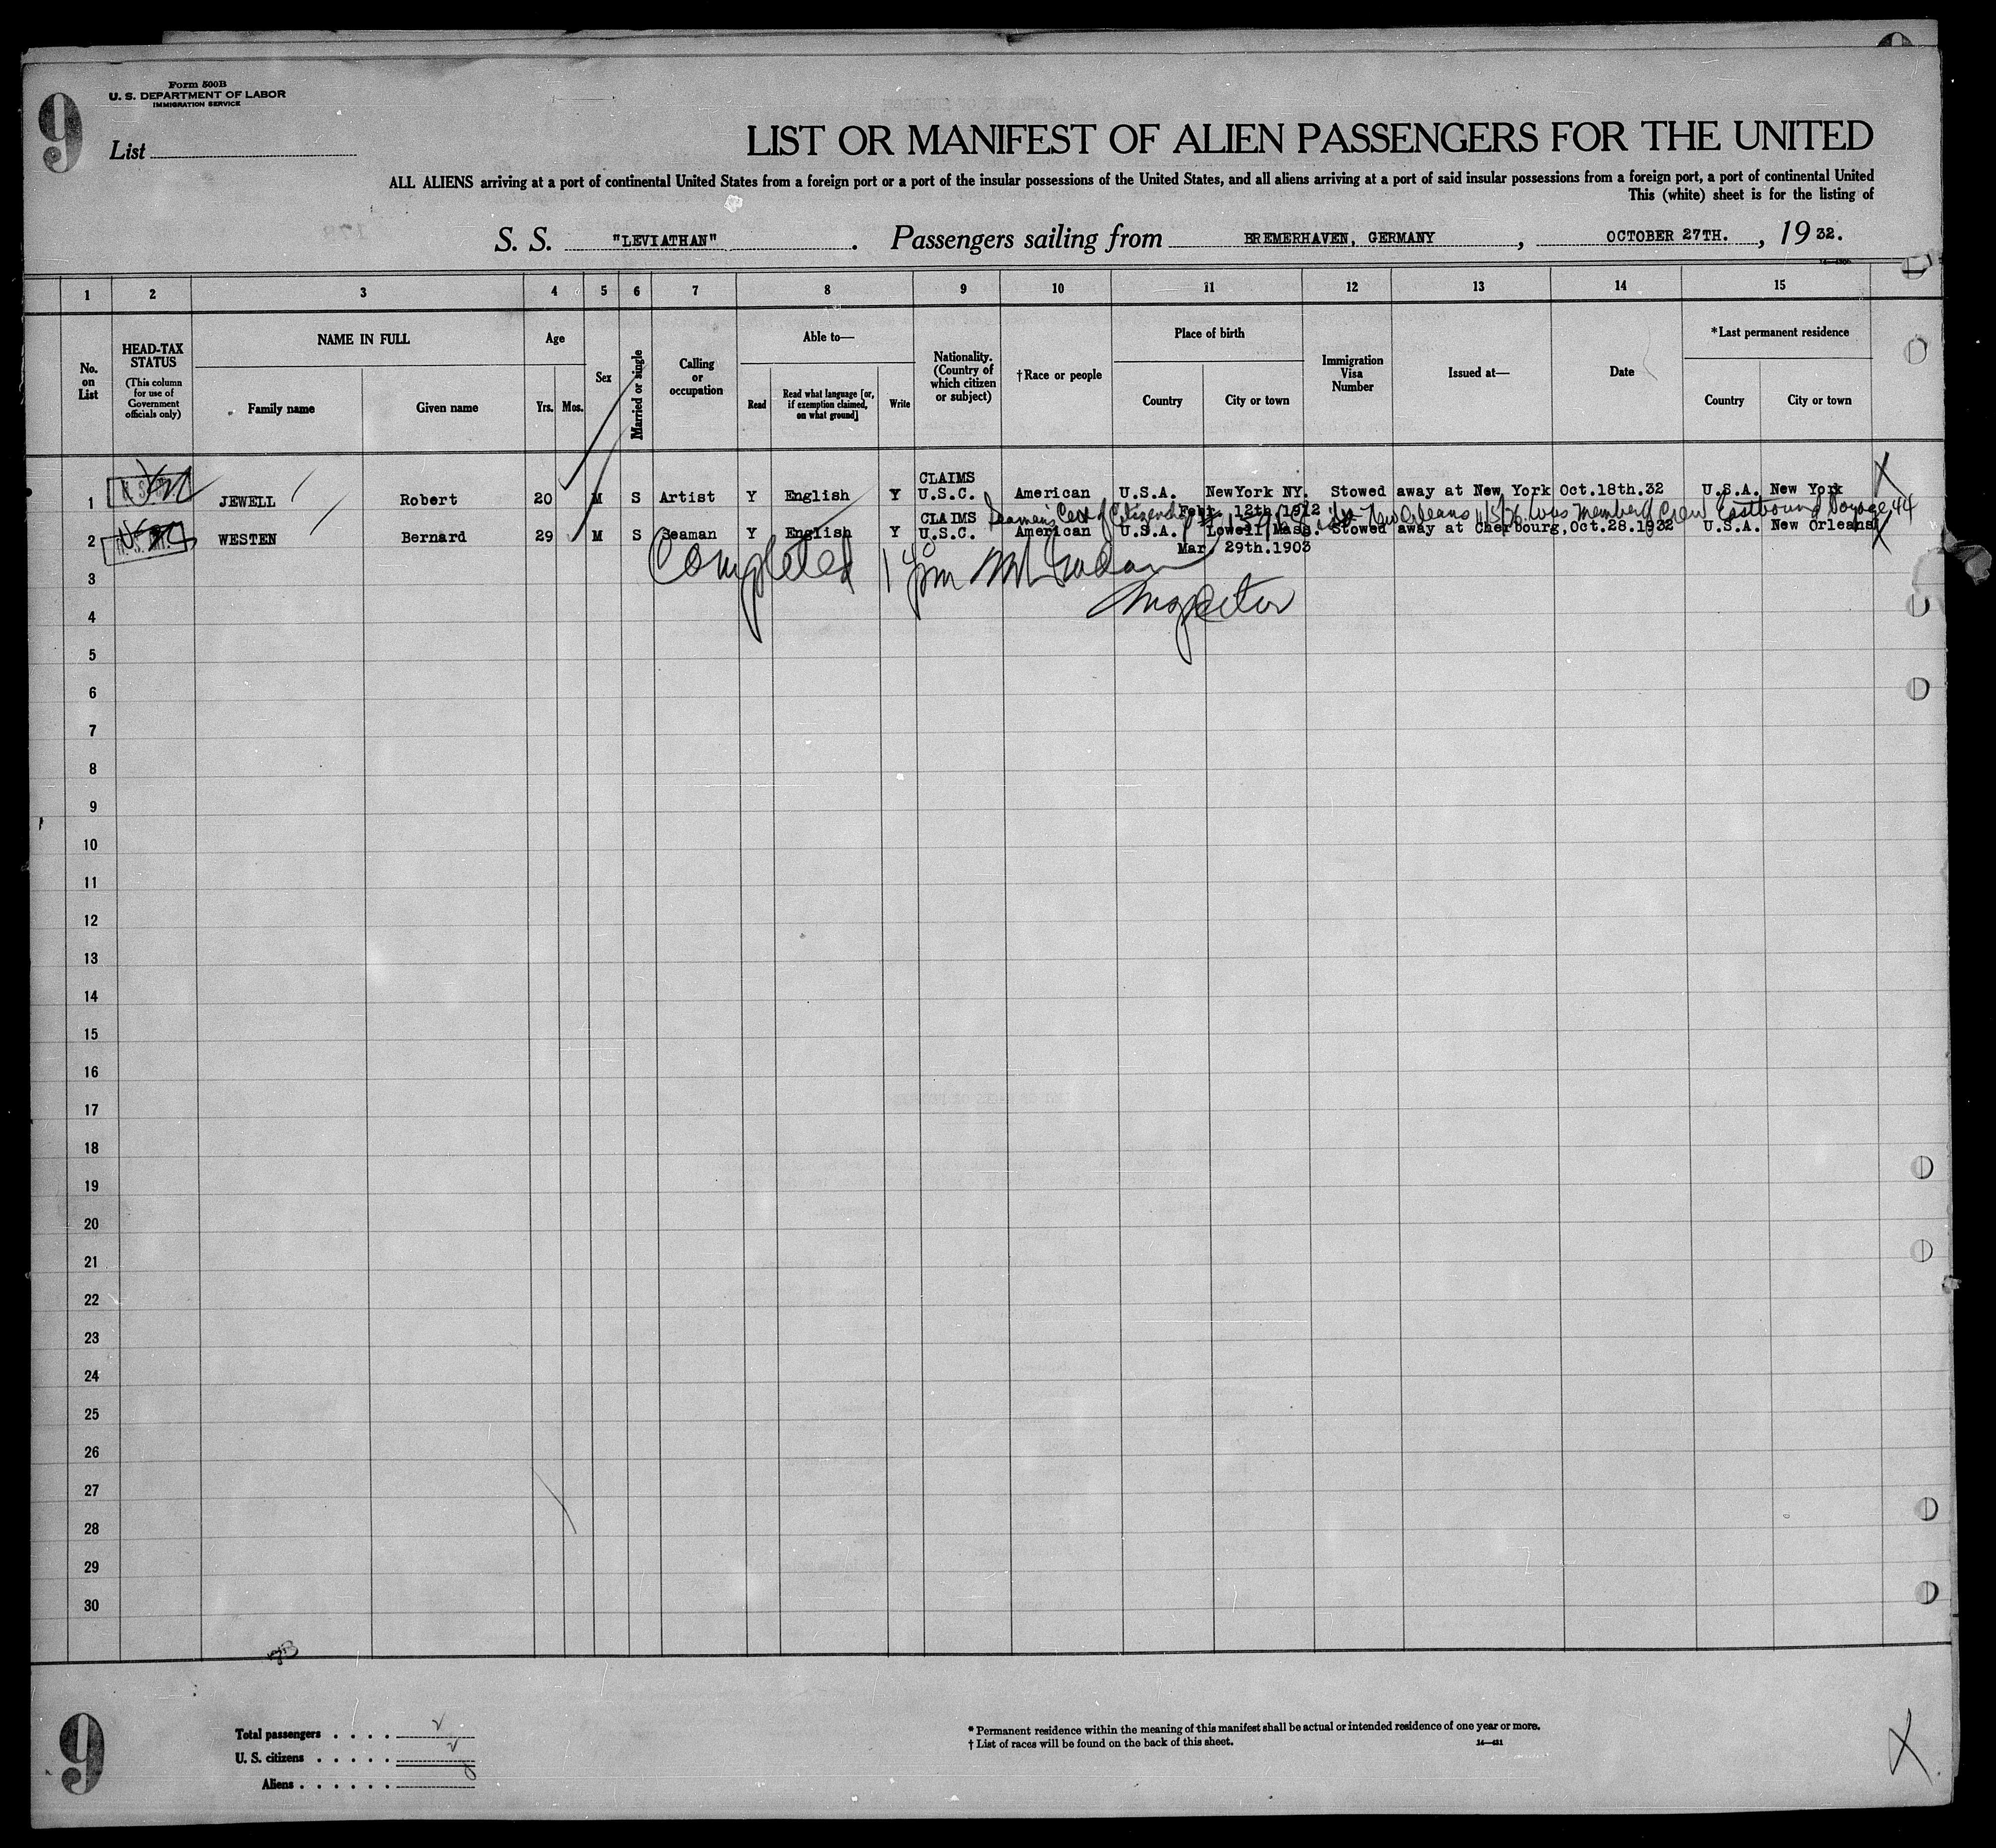 9
Form 500B
U. S. DEPARTMENT OF LABOR
IMMIGRATION SERVICE
List
LIST OR MANIFEST OF ALIEN PASSENGERS FOR THE UNITED
ALL ALIENS arriving at a port of continental United States from a foreign port or a port of the insular possessions of the United States, and all aliens arriving at a port of said insular possessions from a foreign port, a port of continental United
This (white) sheet is for the listing of
S. S. "LEVIATHAN". Passengers sailing from BREMERHAVEN, GERMANY, OCTOBER 27TH., 1932.
1 2 3 4 5 6 7 8 9 10 11 12 13 14 15
No. on List
HEAD-TAX STATUS
(This column for use of Government officials only)
NAME IN FULL
Family name
Given name
Age
Yrs.
Mos.
Sex
Married or single
Calling or occupation
Able to—
Read
Read what language [or, if exemption claimed, on what ground]
Write
Nationality. (Country of which citizen or subject)
†Race or people
Place of birth
Country
City or town
Immigration Visa Number
Issued at—
Date
*Last permanent residence
Country
City or town
CLAIMS
1 JEWELL Robert 20 M S Artist Y English Y U.S.C. American U.S.A. NewYork NY. Stowed away at New York Oct.18th.32 U.S.A. New York
Febr. 12th.1912
Seamen's Cert of Citizenship New Orleans was member of Crew Eastbound Voyage 44
CLAIMS
2 WESTEN Bernard 29 M S Seaman Y English Y U.S.C. American U.S.A. Lowell Mass. Stowed away at Cherbourg,Oct.28.1932 U.S.A. New Orleans
Mar. 29th.1903
Completed 1 pm
Inspector
3
4
5
6
7
8
9
10
11
12
13
14
15
16
17
18
19
20
21
22
23
24
25
26
27
28
29
30
9
Total passengers . . . .
U. S. citizens . . . . .
Aliens . . . . . .
* Permanent residence within the meaning of this manifest shall be actual or intended residence of one year or more.
† List of races will be found on the back of this sheet.
14—431
X